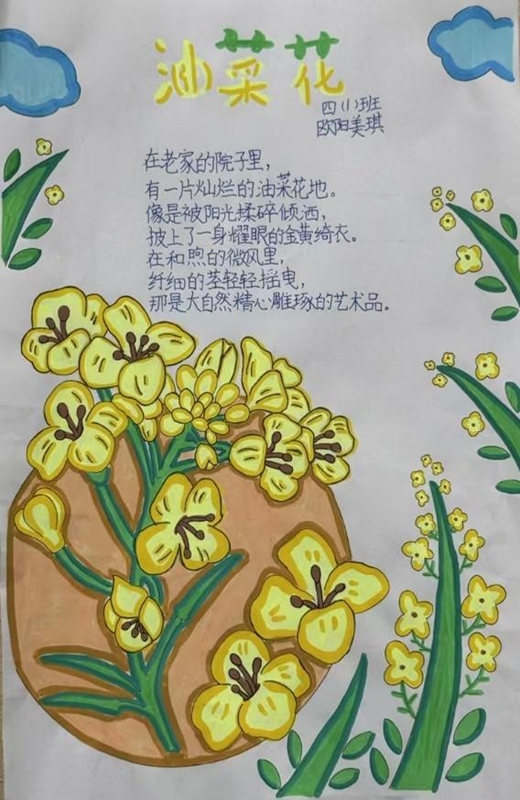 油菜花
四(1)班
欧阳美琪
在老家的院子里，
有一片灿烂的油菜花地。
像是被阳光揉碎倾洒，
披上了一身耀眼的金黄绮衣。
在和煦的微风里，
纤细的茎轻轻摇曳，
那是大自然精心雕琢的艺术品。